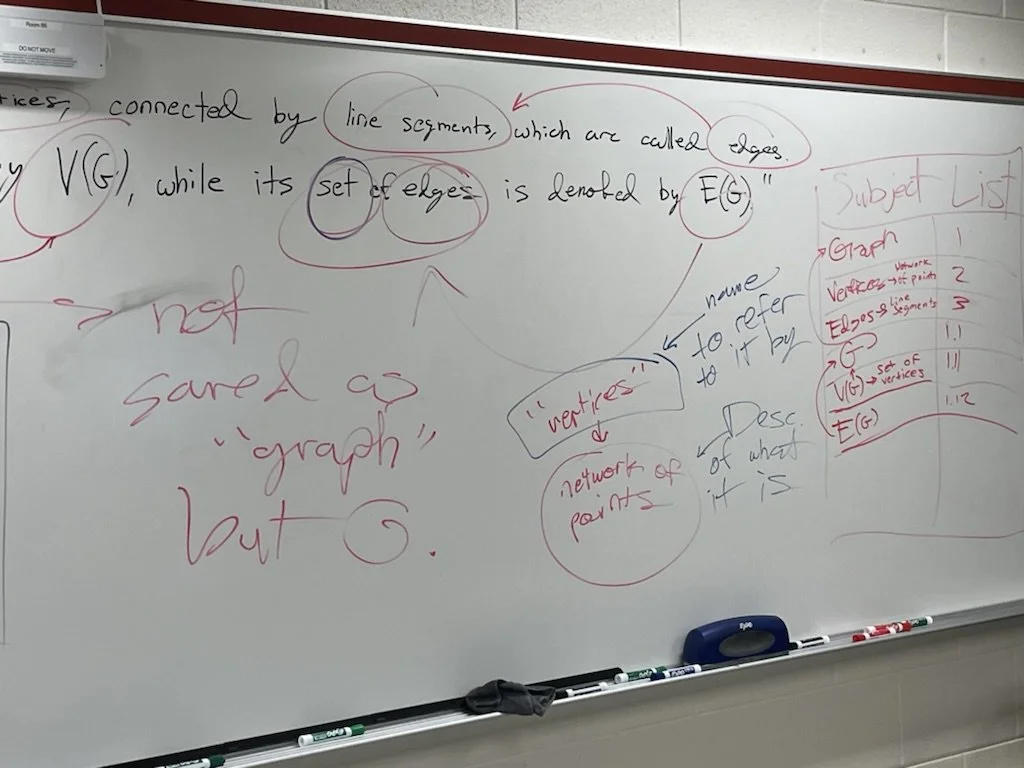 Room 86
DO NOT MOVE
connected by line segments, which are called edges.
V(G), while its set of edges is denoted by E(G)"
Subject List
Graph 1
Vertices → Network of points 2
Edges → Line Segments 3
G 1.1
V(G) → set of vertices 1.11
E(G) 1.12
not
saved as
"graph"
but G.
name
to refer
to it by
"vertices"
network of
points
Desc.
of what
it is
Expo